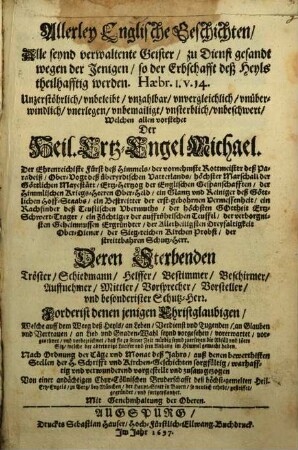 Allerley Englische Geschichten/
Alle seynd verwaltente Geister/ zu Dienst gesandt
wegen der Jenigen/ so der Erbschafft deß Heyls
theilhafftig werden. Hæbr. 1. V. 14.
Unzerstöhrlich/ unbeibt/ unzahlbar/ unvergleichlich/ unüber-
windlich/ unerlegen/ unbemailigt/ unsterblich/ unbeschwert/
Welchen allen vorstehet
Der
Heil. Ertz-Engel Michael.
Der Ehrenreichiste Fürst deß Himmels/ der vornehmste Rottmeister deß Pa-
radeiß/ Ober-Vogt deß überyrdischen Vatterlands/ höchster Marschalck der
Göttlichen Mayestätt/ Ertz-Hertzog der Englischen Gespanschafften/ der
Himmlischen Kriegs-Heeren Ober-Held/ ein Glantz und Kleinod deß Gött-
lichen Hoff-Staabs/ ein Bestreitter der erst-gebohrnen Vermessenheit/ ein
Rachfinder deß Teuflischen Ubermuths/ der höchsten Gottheit Ertz-
Schwert-Trager/ ein Züchtiger der auffrührischen Teuffel/ der verborgni-
sten Geheimnussen Ergründer/ der Allerheiligisten Dreyfaltigkeit
Ober-Diener/ der Sitgreichen Kirchen Probst/ der
streittbahren Schutz-Herr.
Deren Sterbenden
Tröster/ Schiedmann/ Helffer/ Bestimmer/ Beschirmer/
Auffnehmer/ Mittler/ Vorsprecher/ Vorsteller/
und besonderister Schutz-Herr.
Forderist denen jenigen Christglaubigen/
Welche auff dem Weeg deß Heyls/ an Lehen/ Verdienst und Tugenden/ an Glauben
und Vertrauen/ an Lieb und Gnaden-Wahl seynd vorgesehen/
Nach Ordnung der Täg und Monat deß Jahrs/ auß denen bewerthisten
Stellen der H. Schrifft und Kirchen-Geschichten sorgfältig/ warhaff-
tig und verwunderend vorgestellt und zusam gezogen
Von einer andächtigen Chur-Cöllnischen Bruderschafft deß höchstgemelten Heil.
Ertz-Engels/
Mit Genehmhaltung der Oberen.
AUGSPURG/
Druckts Sebastian Hauser/ Hoch-Fürstlich-Ellwang. Buchdruck.
Im Jahr 1697.